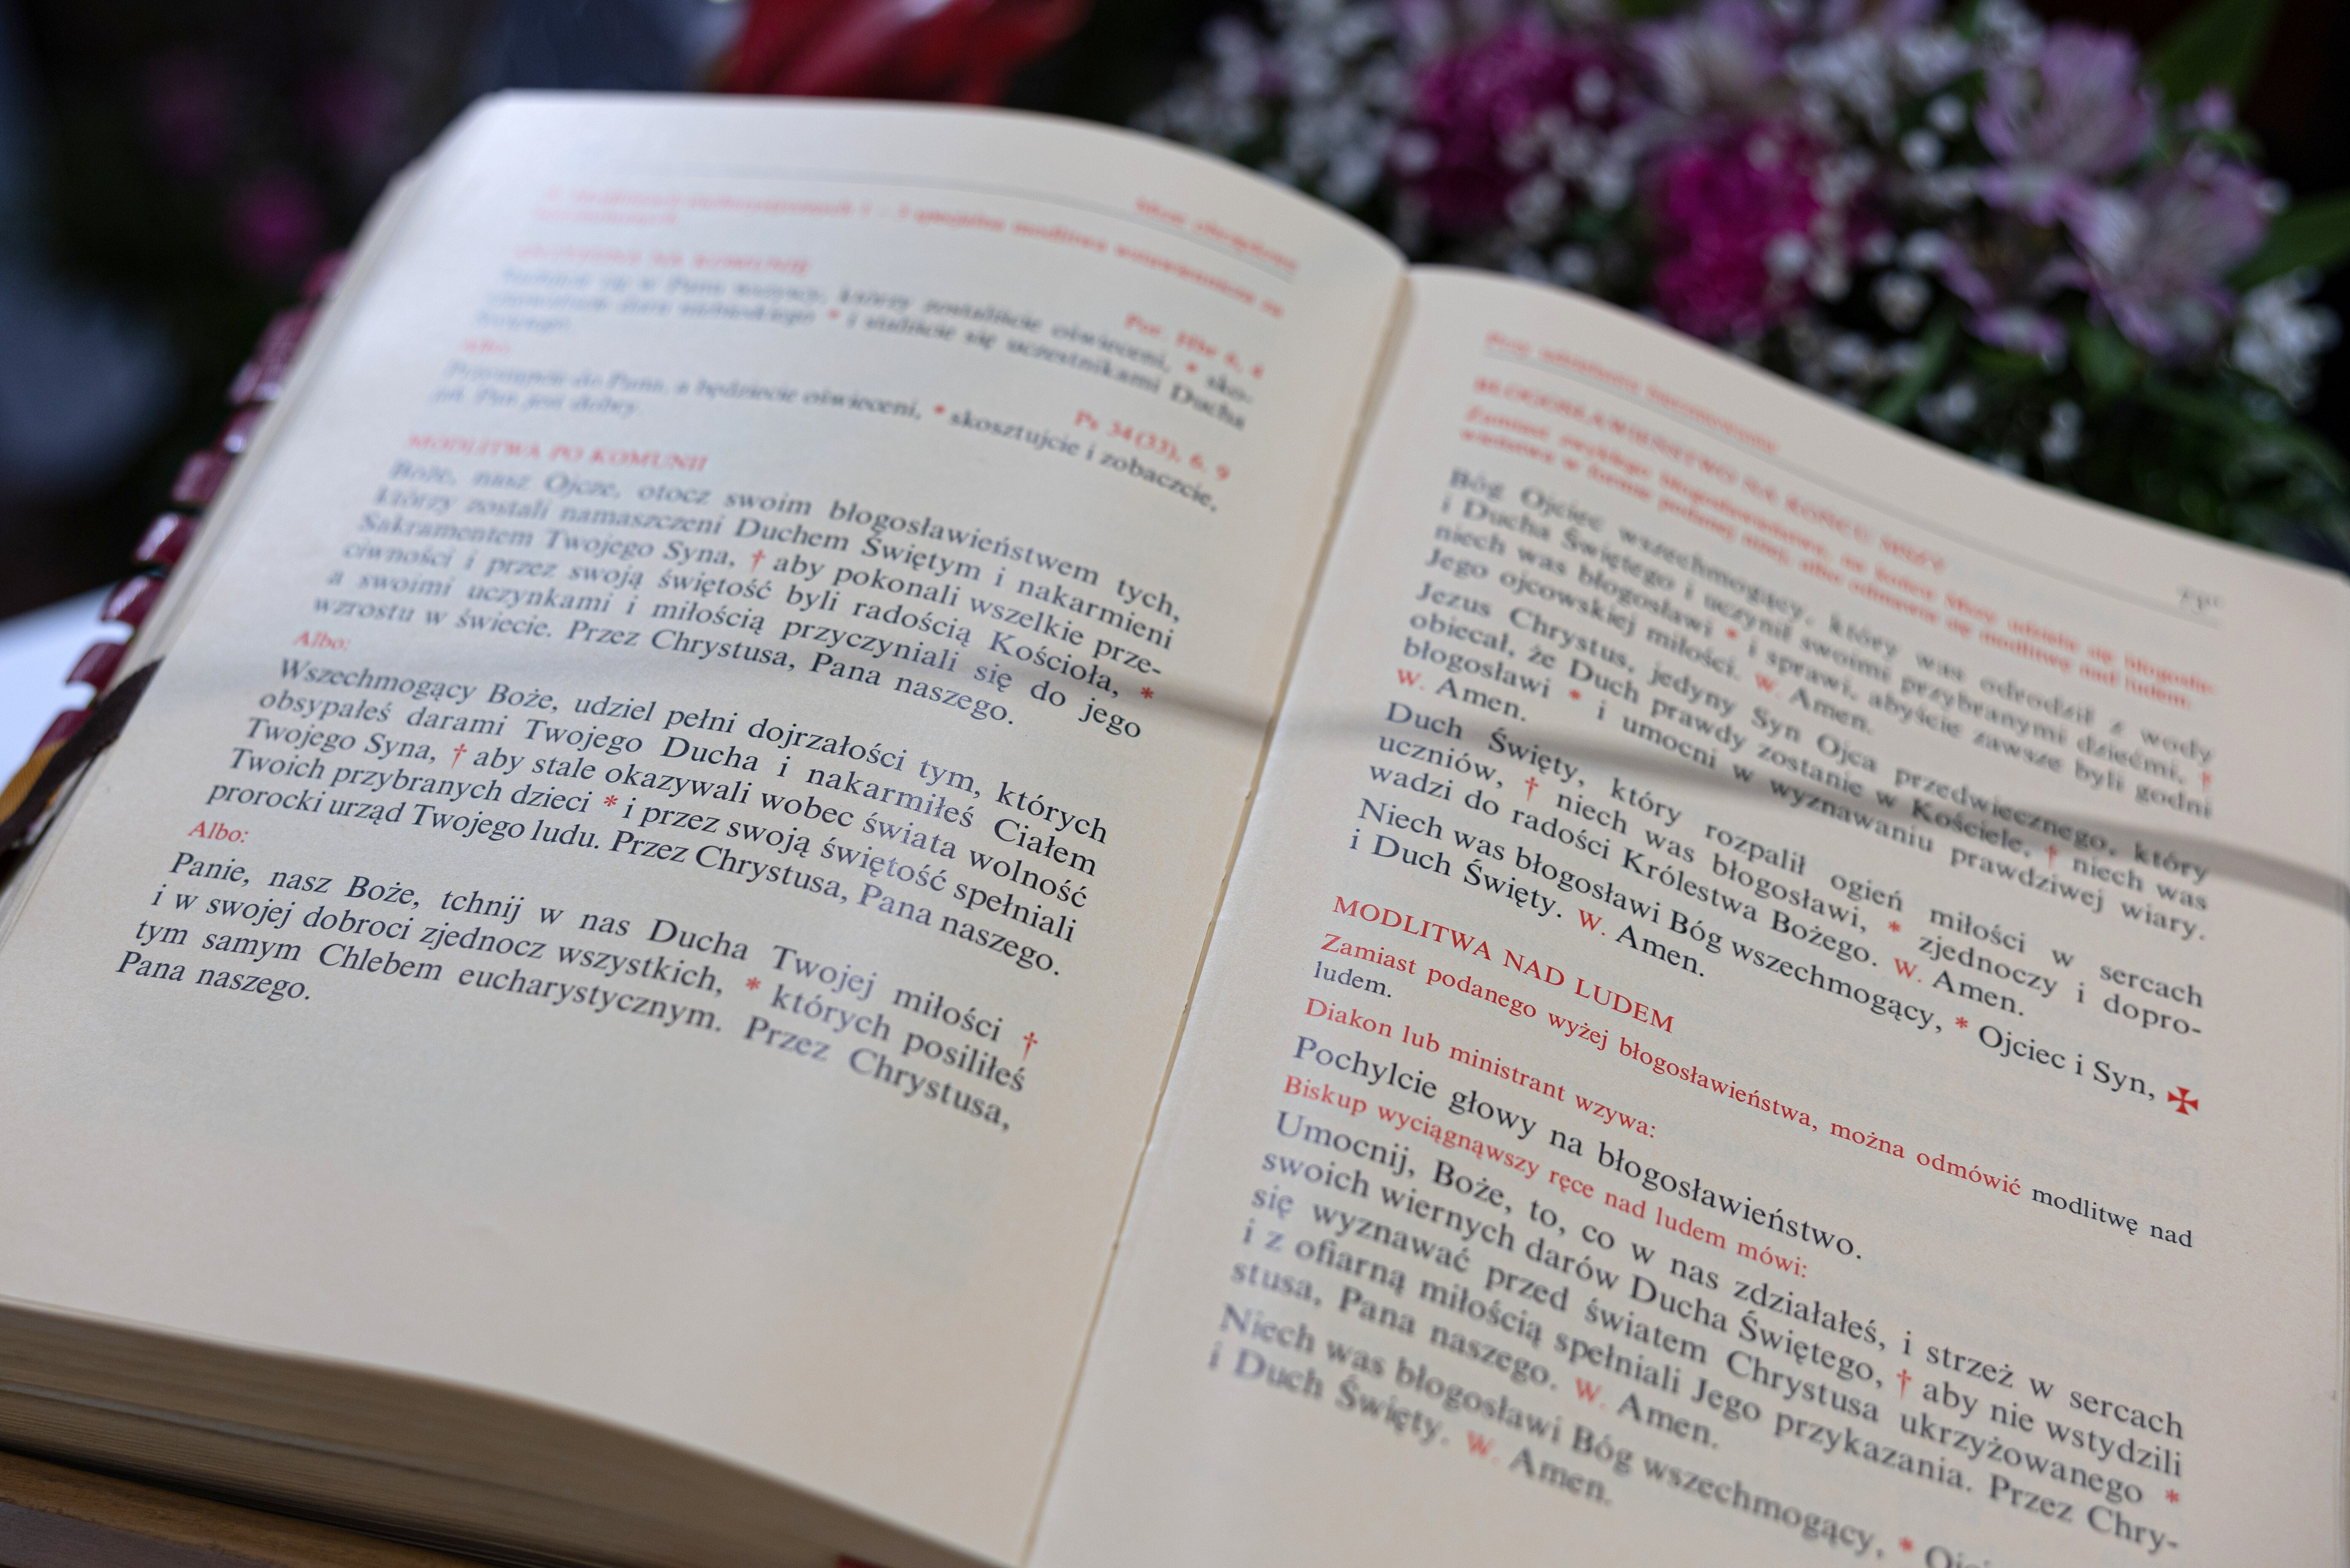 Msze obrzędowe
W Modlitwach eucharystycznych 1 – 3 specjalna modlitwa wstawiennicza za
ANTYFONA NA KOMUNIĘ
Por. Hbr 6, 4
Radujcie się w Panu wszyscy, którzy zostaliście oświeceni, * sko-
daru niebieskiego * i staliście się uczestnikami Ducha
Świętego.
Albo:
Ps 34(33), 6. 9
Przystąpcie do Pana, a będziecie oświeceni, * skosztujcie i zobaczcie,
jak Pan jest dobry.
MODLITWA PO KOMUNII
Boże, nasz Ojcze, otocz swoim błogosławieństwem tych,
którzy zostali namaszczeni Duchem Świętym i nakarmieni
Sakramentem Twojego Syna, † aby pokonali wszelkie prze-
ciwności i przez swoją świętość byli radością Kościoła, *
a swoimi uczynkami i miłością przyczyniali się do jego
wzrostu w świecie. Przez Chrystusa, Pana naszego.
Albo:
Wszechmogący Boże, udziel pełni dojrzałości tym, których
obsypałeś darami Twojego Ducha i nakarmiłeś Ciałem
Twojego Syna, † aby stale okazywali wobec świata wolność
Twoich przybranych dzieci * i przez swoją świętość spełniali
prorocki urząd Twojego ludu. Przez Chrystusa, Pana naszego.
Albo:
Panie, nasz Boże, tchnij w nas Ducha Twojej miłości †
i w swojej dobroci zjednocz wszystkich, * których posiliłeś
tym samym Chlebem eucharystycznym. Przez Chrystusa,
Pana naszego.
Przy udzielaniu bierzmowania
BŁOGOSŁAWIEŃSTWO NA KOŃCU MSZY
Zamiast zwykłego błogosławieństwa, na końcu Mszy udziela się błogosła-
wieństwa w formie podanej niżej, albo odmawia się modlitwę nad ludem.
Bóg Ojciec wszechmogący, który was odrodził z wody
i Ducha Świętego i uczynił swoimi przybranymi dziećmi, †
niech was błogosławi * i sprawi, abyście zawsze byli godni
Jego ojcowskiej miłości. W. Amen.
Jezus Chrystus, jedyny Syn Ojca przedwiecznego, który
obiecał, że Duch prawdy zostanie w Kościele, † niech was
błogosławi * i umocni w wyznawaniu prawdziwej wiary.
W. Amen.
Duch Święty, który rozpalił ogień miłości w sercach
uczniów, † niech was błogosławi, * zjednoczy i dopro-
wadzi do radości Królestwa Bożego. W. Amen.
Niech was błogosławi Bóg wszechmogący, * Ojciec i Syn, ✠
i Duch Święty. W. Amen.
MODLITWA NAD LUDEM
Zamiast podanego wyżej błogosławieństwa, można odmówić modlitwę nad
ludem.
Diakon lub ministrant wzywa:
Pochylcie głowy na błogosławieństwo.
Biskup wyciągnąwszy ręce nad ludem mówi:
Umocnij, Boże, to, co w nas zdziałałeś, i strzeż w sercach
swoich wiernych darów Ducha Świętego, † aby nie wstydzili
się wyznawać przed światem Chrystusa ukrzyżowanego *
i z ofiarną miłością spełniali Jego przykazania. Przez Chry-
stusa, Pana naszego. W. Amen.
Niech was błogosławi Bóg wszechmogący, *
i Duch Święty. W. Amen.